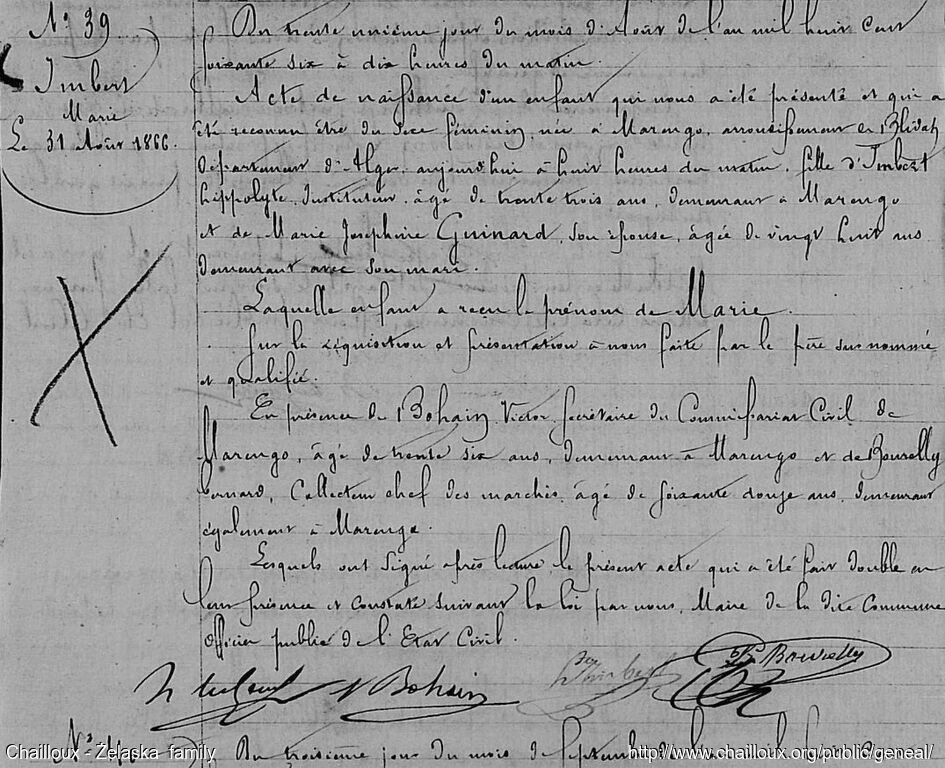 N° 39
Imbert
Marie
Le 31 Août 1866.
Du trente unième jour du mois d'Août de l'an mil huit cent
soixante six à dix heures du matin.
Acte de naissance d'un enfant qui nous a été présenté et qui a
été reconnu être du sexe féminin, née à Marengo, arrondissement de Blidah
département d'Alger, aujourd'hui à huit heures du matin, fille d'Imbert
hippolyte, Instituteur, âgé de trente trois ans, demeurant à Marengo
et de Marie Joséphine Guinard, son épouse, âgée de vingt huit ans
demeurant avec son mari.
Laquelle enfant a reçu le prénom de Marie.
Sur la réquisition et présentation à nous faite par le père susnommé
et qualifié.
En présence de Bohain Victor, Secrétaire du Commissariat Civil de
Marengo, âgé de trente six ans, demeurant à Marengo et de Bourelly
bernard, Collecteur chef des marchés, âgé de soixante douze ans, demeurant
également à Marengo.
Lesquels ont signé après lecture le présent acte qui a été fait double en
leur présence et constaté suivant la loi par nous, Maire de la dite Commune
Officier public de l'Etat Civil.
V Bohain
Imbert
B Bourelly
N°
Du troisième jour du mois de Septembre
Chailloux - Żelaska family
http://www.chailloux.org/public/geneal/